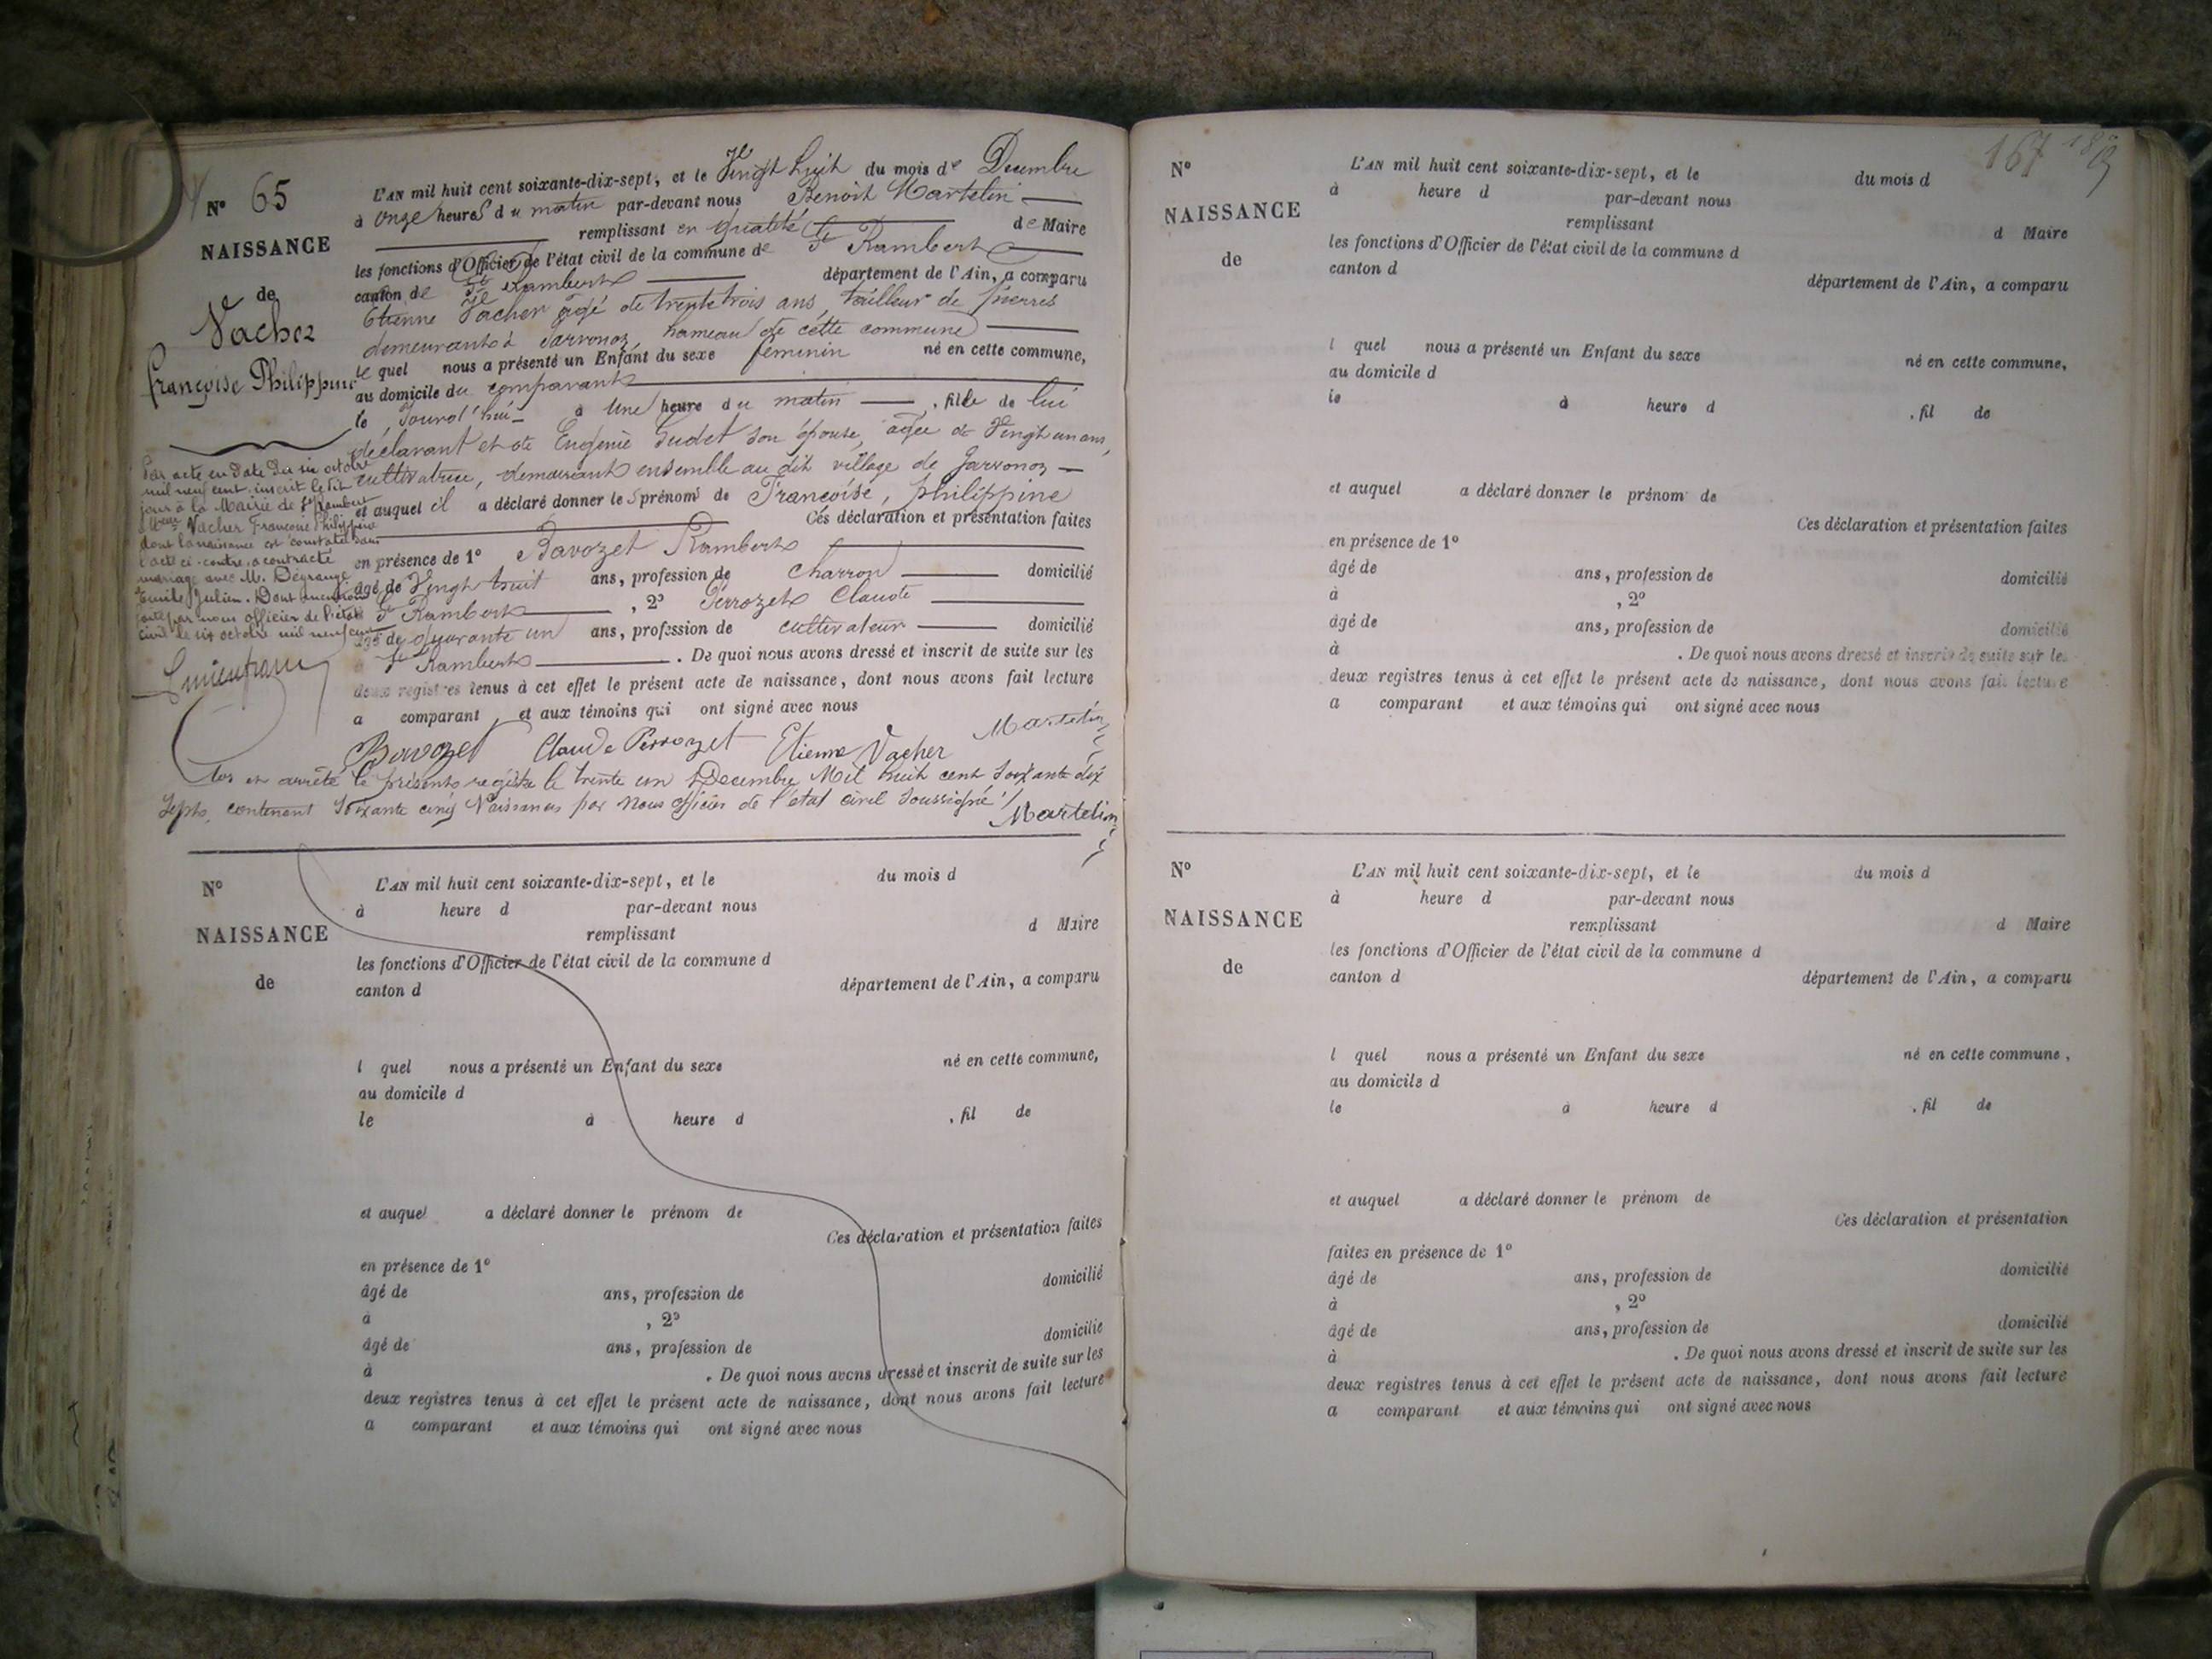 N° 65
NAISSANCE
de
Vacher
Françoise Philippine
L'AN mil huit cent soixante-dix-sept, et le Vingt huit du mois de Decembre
à onze heures du matin par-devant nous Benoit Martelin
remplissant en qualité de Maire
les fonctions d'Officier de l'état civil de la commune de St Rambert
canton de St Rambert département de l'Ain, a comparu
Etienne Vacher agé de trente trois ans, tailleur de pierres
demeurant à Javronoz, hameau de cette commune
le quel nous a présenté un Enfant du sexe féminin né en cette commune,
au domicile du comparant
le Jourd'hui à Une heure du matin , fille de lui
déclarant et de Eugenie Gudet son épouse, agée de Vingt un ans,
cultivatrice, demeurant ensemble au dit village de Javronoz
et auquel il a déclaré donner les prénoms de Françoise, philippine
Ces déclaration et présentation faites
en présence de 1° Bavozet Rambert
âgé de Vingt huit ans, profession de charron domicilié
à St Rambert , 2° Perrozet Claude
âgé de quarante un ans, profession de cultivateur domicilié
à St Rambert . De quoi nous avons dressé et inscrit de suite sur les
deux registres tenus à cet effet le présent acte de naissance, dont nous avons fait lecture
a comparant, et aux témoins qui ont signé avec nous
Bavozet Claude Perrozet Etienne Vacher Martelin
Clos et arrêté le présent registre le trente un Decembre Mil huit cent soixante dix
Sept, contenant Soixante cinq Naissances par Nous officier de l'état civil soussigné
Martelin
Par acte en date du six octobre
mil neuf cent, inscrit le dit
jour à la Mairie de St Rambert
Vacher Françoise Philippine
dont la naissance est constatée dans
l'acte ci-contre, a contracté
mariage avec M. Dégrange
Emile Julien. Dont mention
faite par nous officier de l'état
civil le six octobre mil neuf cent
N°
NAISSANCE
de
L'AN mil huit cent soixante-dix-sept, et le du mois d
à heure d par-devant nous
remplissant d Maire
les fonctions d'Officier de l'état civil de la commune d
canton d département de l'Ain, a comparu
l quel nous a présenté un Enfant du sexe né en cette commune,
au domicile d
le à heure d , fil de
et auquel a déclaré donner le prénom de
Ces déclaration et présentation faites
en présence de 1°
âgé de ans, profession de domicilié
à , 2°
âgé de ans, profession de domicilié
à . De quoi nous avons dressé et inscrit de suite sur les
deux registres tenus à cet effet le présent acte de naissance, dont nous avons fait lecture
a comparant et aux témoins qui ont signé avec nous
167
N°
NAISSANCE
de
L'AN mil huit cent soixante-dix-sept, et le du mois d
à heure d par-devant nous
remplissant d Maire
les fonctions d'Officier de l'état civil de la commune d
canton d département de l'Ain, a comparu
l quel nous a présenté un Enfant du sexe né en cette commune,
au domicile d
le à heure d , fil de
et auquel a déclaré donner le prénom de
Ces déclaration et présentation faites
en présence de 1°
âgé de ans, profession de domicilié
à , 2°
âgé de ans, profession de domicilié
à . De quoi nous avons dressé et inscrit de suite sur les
deux registres tenus à cet effet le présent acte de naissance, dont nous avons fait lecture
a comparant et aux témoins qui ont signé avec nous
N°
NAISSANCE
de
L'AN mil huit cent soixante-dix-sept, et le du mois d
à heure d par-devant nous
remplissant d Maire
les fonctions d'Officier de l'état civil de la commune d
canton d département de l'Ain, a comparu
l quel nous a présenté un Enfant du sexe né en cette commune,
au domicile d
le à heure d , fil de
et auquel a déclaré donner le prénom de
Ces déclaration et présentation
faites en présence de 1°
âgé de ans, profession de domicilié
à , 2°
âgé de ans, profession de domicilié
à . De quoi nous avons dressé et inscrit de suite sur les
deux registres tenus à cet effet le présent acte de naissance, dont nous avons fait lecture
a comparant et aux témoins qui ont signé avec nous